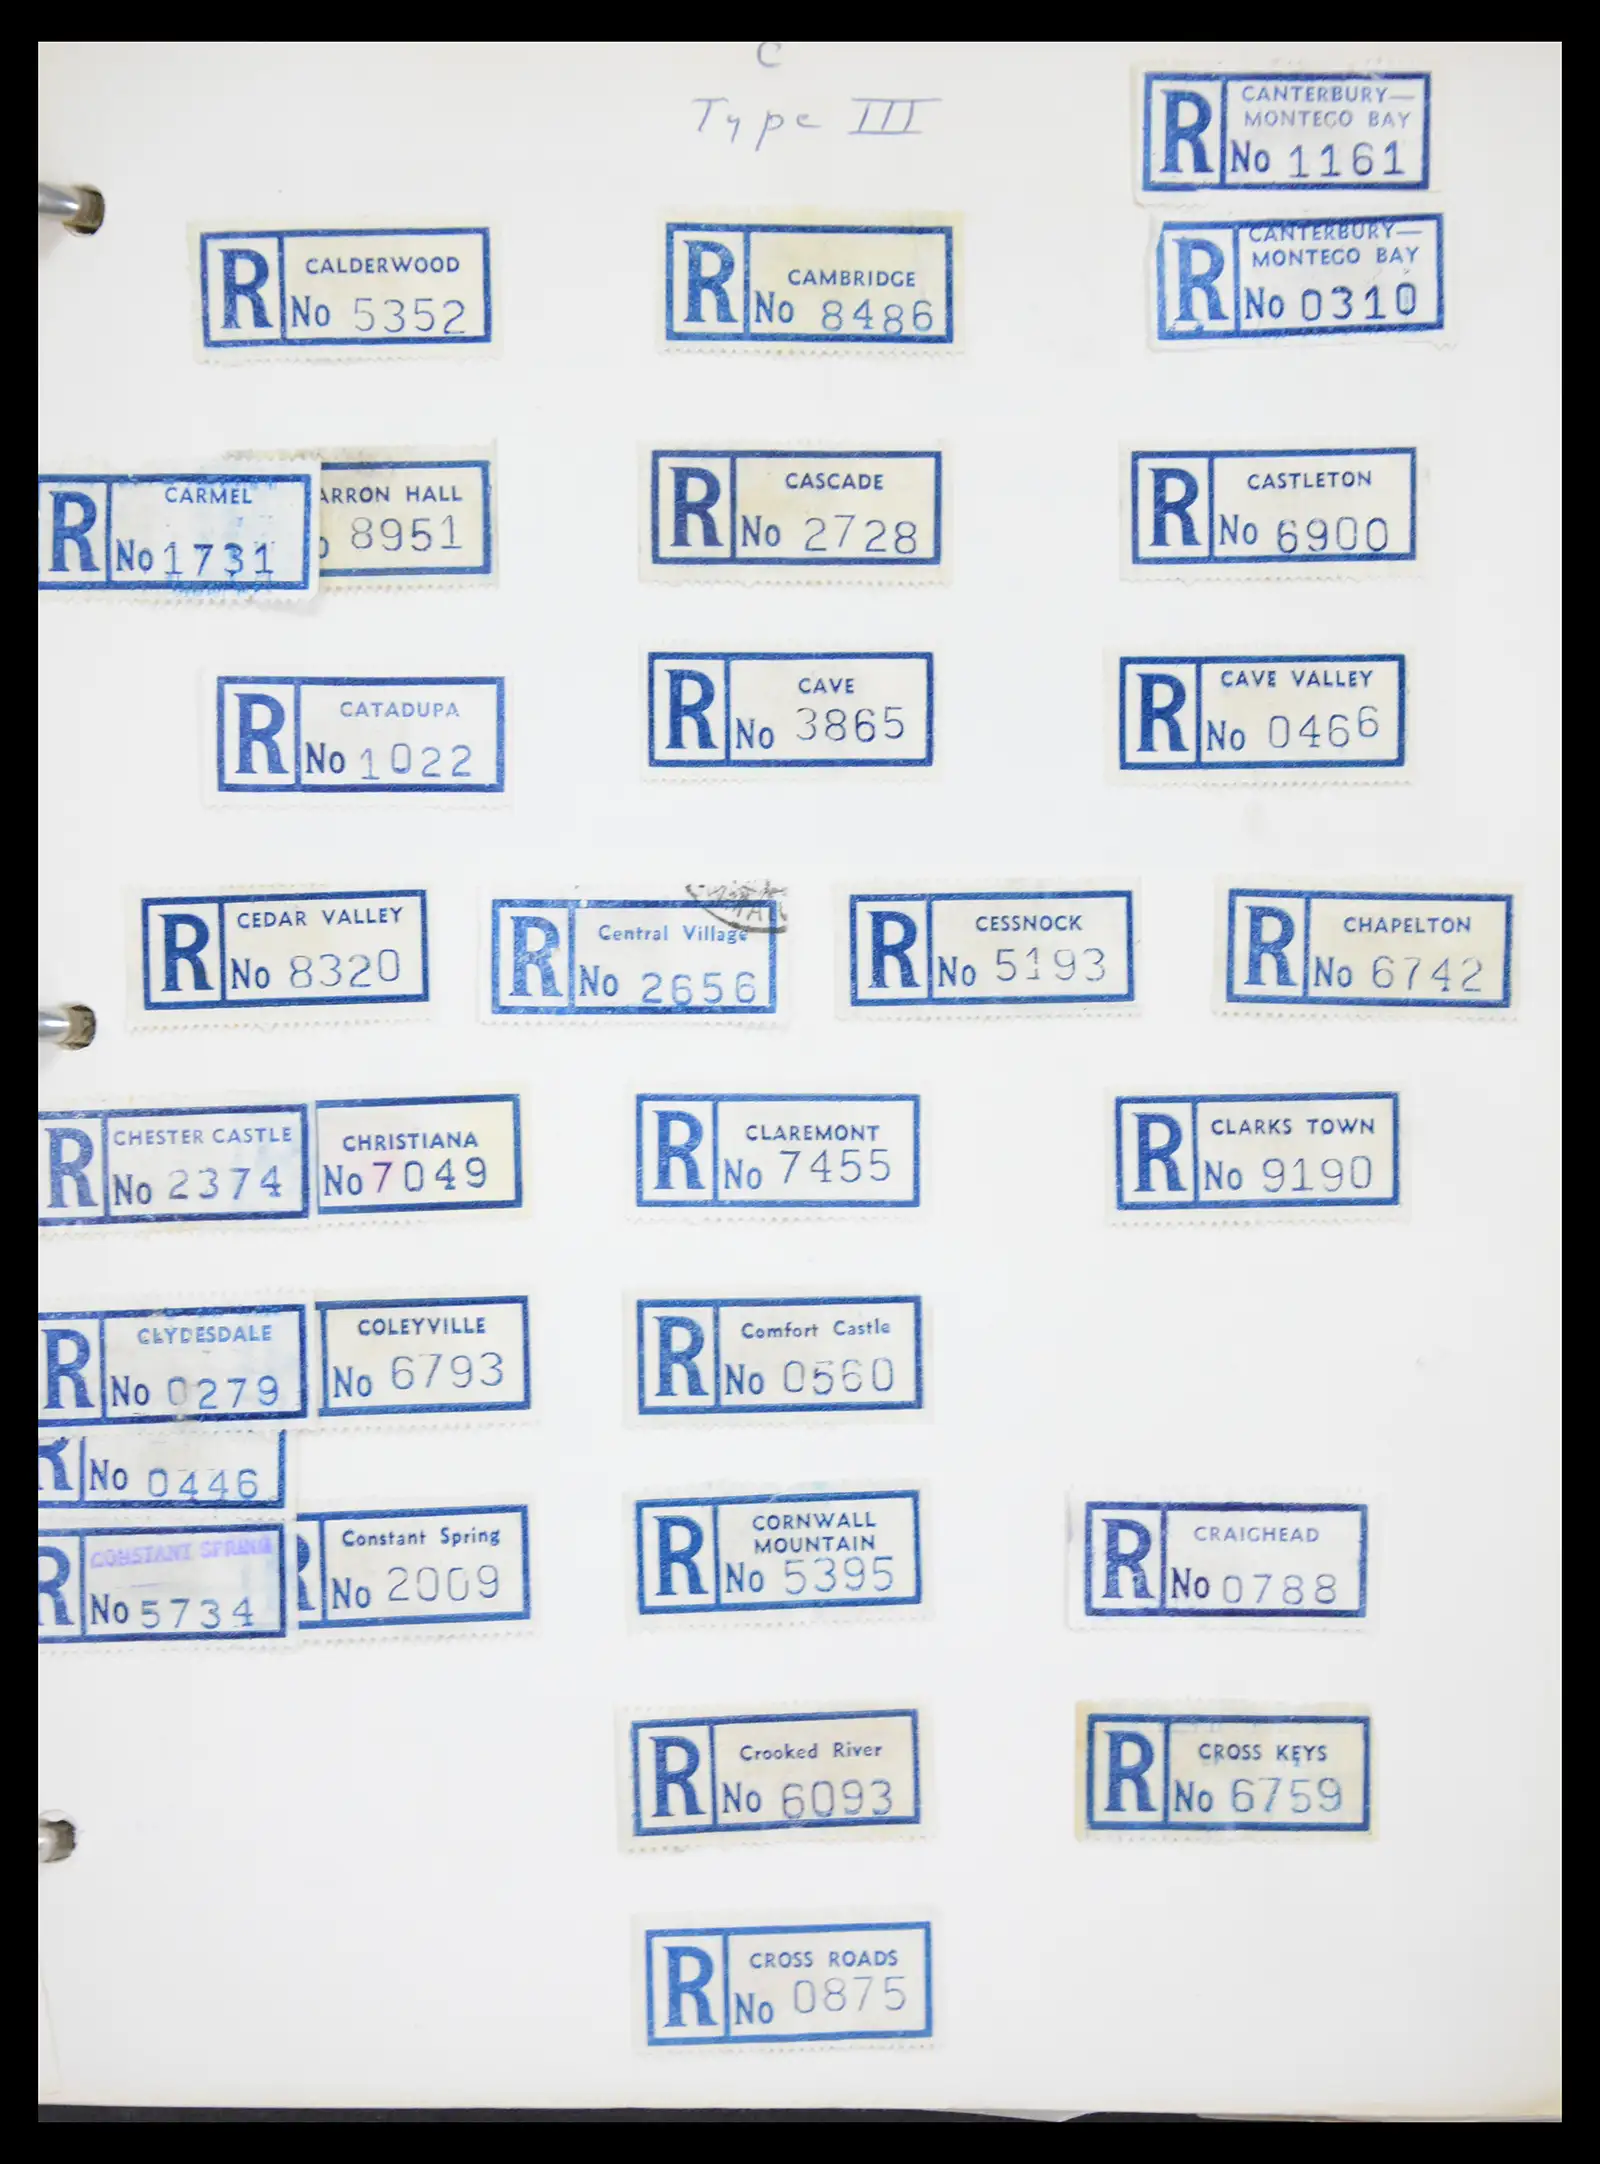 C
Type III
R
CANTERBURY—
MONTEGO BAY
No 1161
R
CALDERWOOD
No 5352
R
CAMBRIDGE
No 8486
R
CANTERBURY—
MONTEGO BAY
No 0310
R
CARMEL
No 1731
ARRON HALL
8951
R
CASCADE
No 2728
R
CASTLETON
No 6900
R
CATADUPA
No 1022
R
CAVE
No 3865
R
CAVE VALLEY
No 0466
R
CEDAR VALLEY
No 8320
R
Central Village
No 2656
R
CESSNOCK
No 5193
R
CHAPELTON
No 6742
R
CHESTER CASTLE
No 2374
CHRISTIANA
No 7049
R
CLAREMONT
No 7455
R
CLARKS TOWN
No 9190
R
CLYDESDALE
No 0279
COLEYVILLE
No 6793
R
Comfort Castle
No 0560
R
No 0446
R
CONSTANT SPRING
No 5734
R
Constant Spring
No 2009
R
CORNWALL
MOUNTAIN
No 5395
R
CRAIGHEAD
No 0788
R
Crooked River
No 6093
R
CROSS KEYS
No 6759
R
CROSS ROADS
No 0875